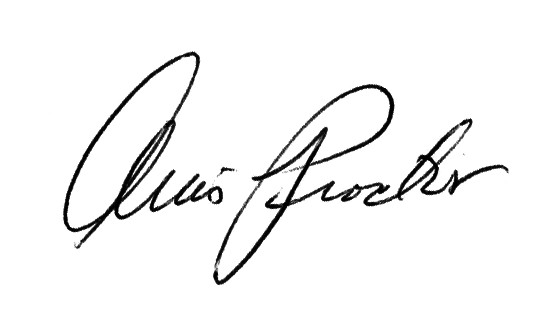 Chris Procter